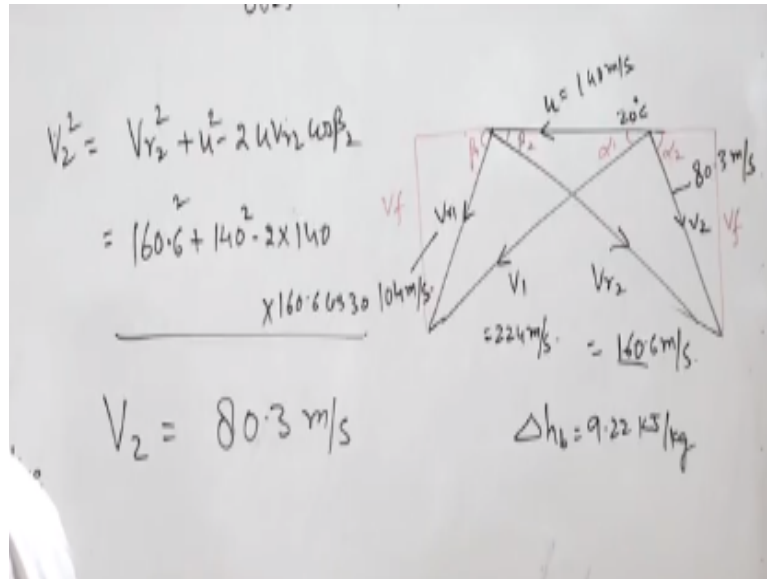 V₂² = Vr₂² + u² - 2uVr₂ cosβ₂
= 160.6² + 140² - 2×140
×160.6 cos30
V₂ = 80.3 m/s
u = 140 m/s
20°
β₁ β₂ α₁ α₂
80.3 m/s
Vf Vr1 V₂ Vf
104 m/s
V₁ Vr₂
= 224 m/s. = 160.6 m/s.
Δhb = 9.22 kJ/kg